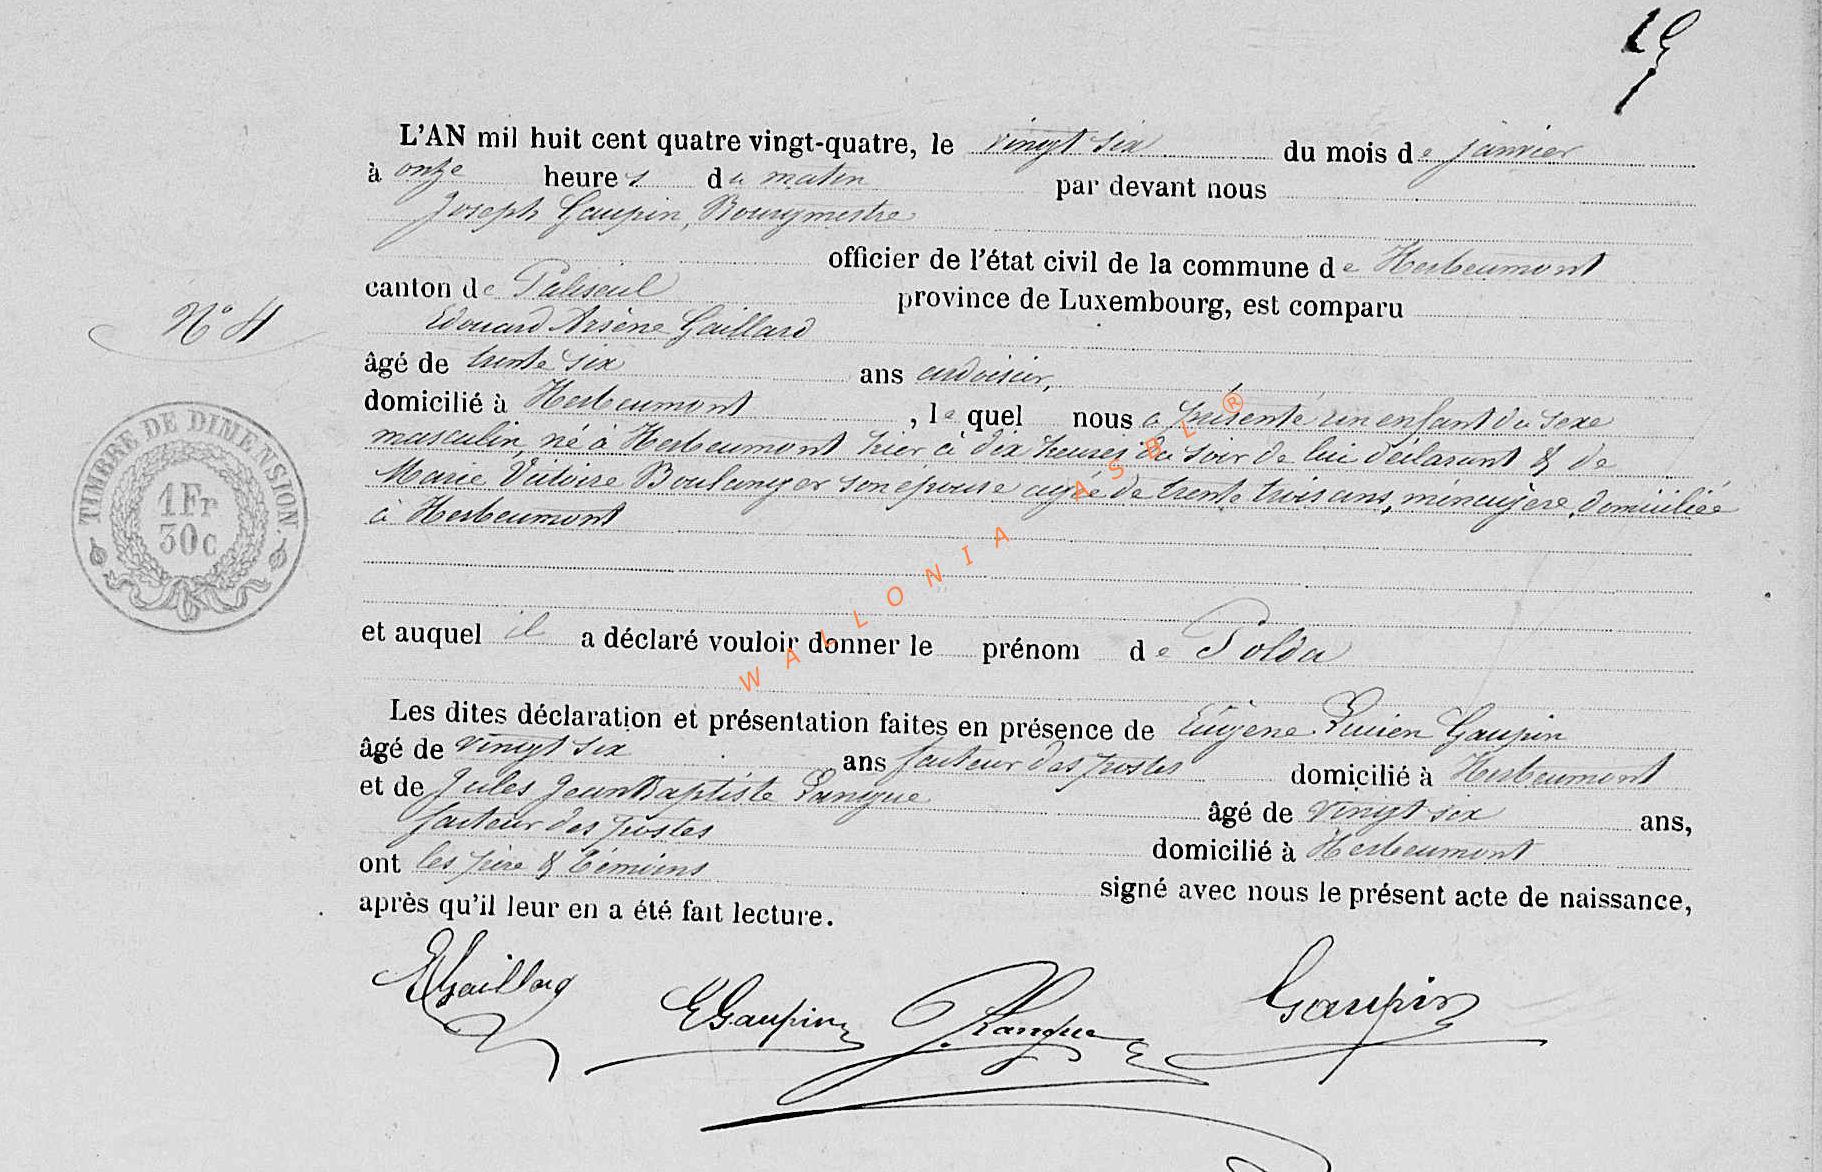 L'AN mil huit cent quatre vingt-quatre, le vingt six du mois de janvier
à onze heures du matin par devant nous
Joseph Gaupin, Bourgmestre
officier de l'état civil de la commune de Herbeumont
canton de Paliseul province de Luxembourg, est comparu
Edouard Arsène Gaillard
N° 4
âgé de trente six ans ardoisier,
domicilié à Herbeumont, le quel nous a présenté un enfant du sexe
masculin, né à Herbeumont hier à dix heures du soir de lui déclarant & de
Marie Victoire Boulanger son épouse agée de trente trois ans, ménagère, domiciliée
à Herbeumont
TIMBRE DE DIMENSION.
1 Fr
30 c
et auquel il a déclaré vouloir donner le prénom de Polda
WALLONIA ASBL ®
Les dites déclaration et présentation faites en présence de Eugène Lucien Gaupin
âgé de vingt six ans facteur des postes domicilié à Herbeumont
et de Jules Jean Baptiste Langue âgé de vingt six ans,
facteur des postes domicilié à Herbeumont
ont les père & témoins signé avec nous le présent acte de naissance,
après qu'il leur en a été fait lecture.
EGaillard EGaupin J. Langue Gaupin